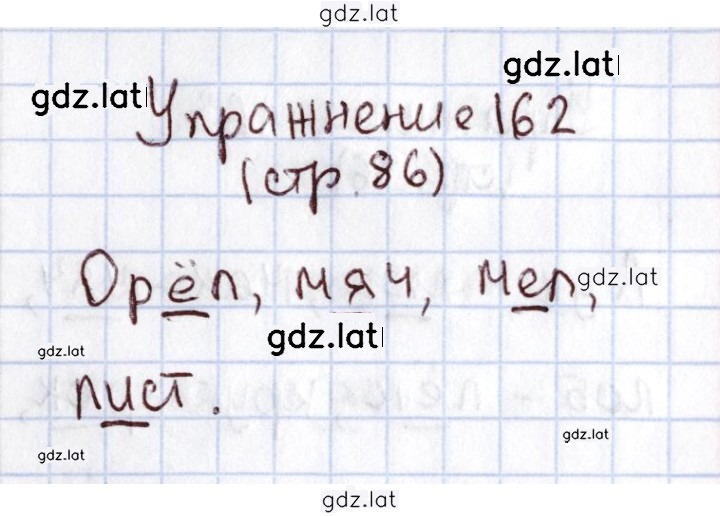 gdz.lat
gdz.lat
gdz.lat
Упражнение 162
(стр. 86)
Орёл, мяч, мел,
gdz.lat
gdz.lat
gdz.lat
лист.
gdz.lat
gdz.lat
gdz.lat